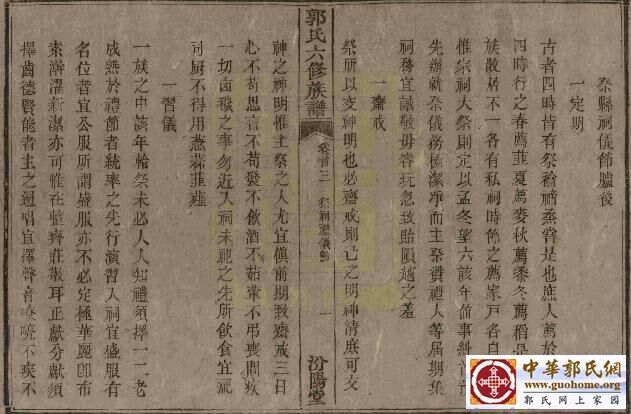 祭縣祠儀節臚後
一定期
古者四時皆有祭禴禘烝嘗是也庶人薦於
四時行之春薦韭夏薦麥秋薦黍冬薦稻
族散居不一各有私祠時節之薦家戸各自
惟宗祠大祭則定以孟冬望六該年值事糾首
先辦就祭儀務極潔净而主祭贊禮人等屆期集
祠務宜誠敬毋容玩忽致貽隕越之羞
一齋戒
祭所以交神明也必齋戒則已之明神清庶可交
郭氏六修族譜
卷首三
祭祠禮儀節
一
汾陽堂
神之神明惟主祭之人尤宜慎前期致齋戒三日
心不苟思言不苟發不飲酒不茹葷不弔喪問疾
一切凶穢之事勿近入祠未祀之先所飲食宜祠
司厨不得用葱蒜韮薤
一習儀
一族之中該年輪祭未必人人知禮須擇一二老
成熟於禮節者統率之先行演習入祠宜盛服有
名位者宜公服所謂盛服亦不必定極華麗卽布
素澣濯新潔亦可惟在整齊莊敬耳正獻分獻須
擇齒德賢能者主之通唱宜擇聲音嘹喨不疾不
中華郭氏網
www.guohome.org
郭氏網上家園